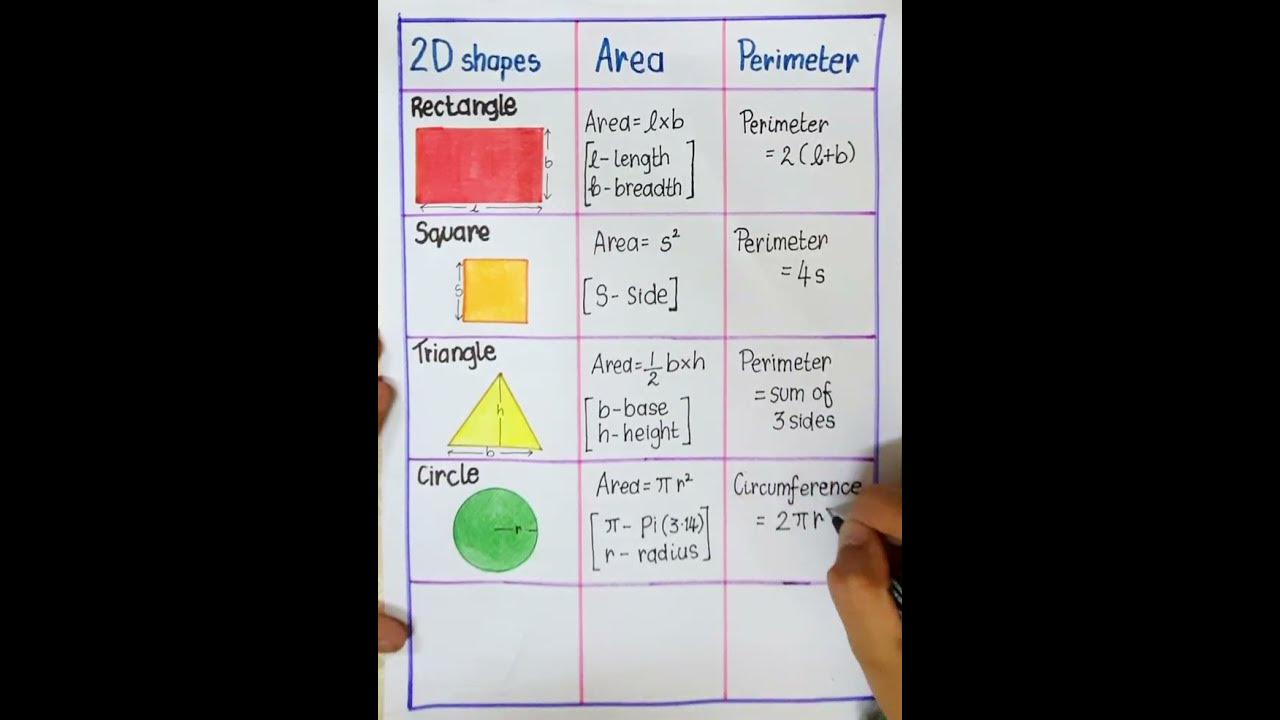 2D shapes
Area
Perimeter
Rectangle
b
l
Area= l×b
[l- length
b- breadth]
Perimeter
= 2(l+b)
Square
s
Area= s²
[S- side]
Perimeter
= 4s
Triangle
h
b
Area= 1/2 b×h
[b-base
h-height]
Perimeter
= sum of
3 sides
Circle
r
Area= πr²
[π- Pi (3·14)
r- radius]
Circumference
= 2πr